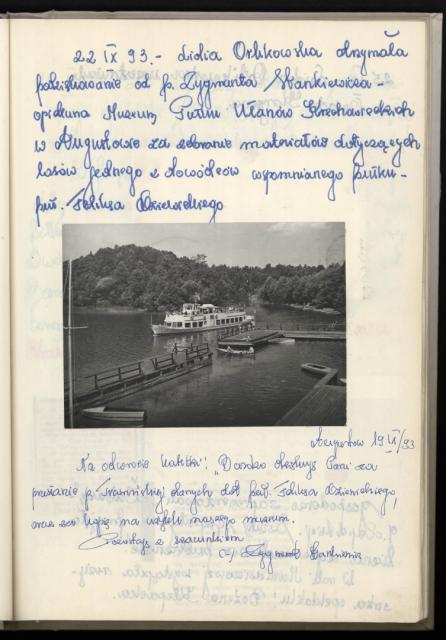 22 IX 93. - Lidia Orlikowska otrzymała
podziękowanie od p. Zygmunta Stankiewicza -
opiekuna Muzeum Pułku Ułanów Krechowieckich
w Augustowie za zebranie materiałów dotyczących
losów jednego z dowódców wspomnianego pułku -
płk. Feliksa Dziewickiego
Augustów 19 IX/93
Na odwrocie kartki: "Bardzo dziękuję Pani za
p. danych dot. płk. Feliksa Dziewickiego,
oraz za na rzecz naszego muzeum.
Pozostaję z szacunkiem
(-) Zygmunt Stankiewicz